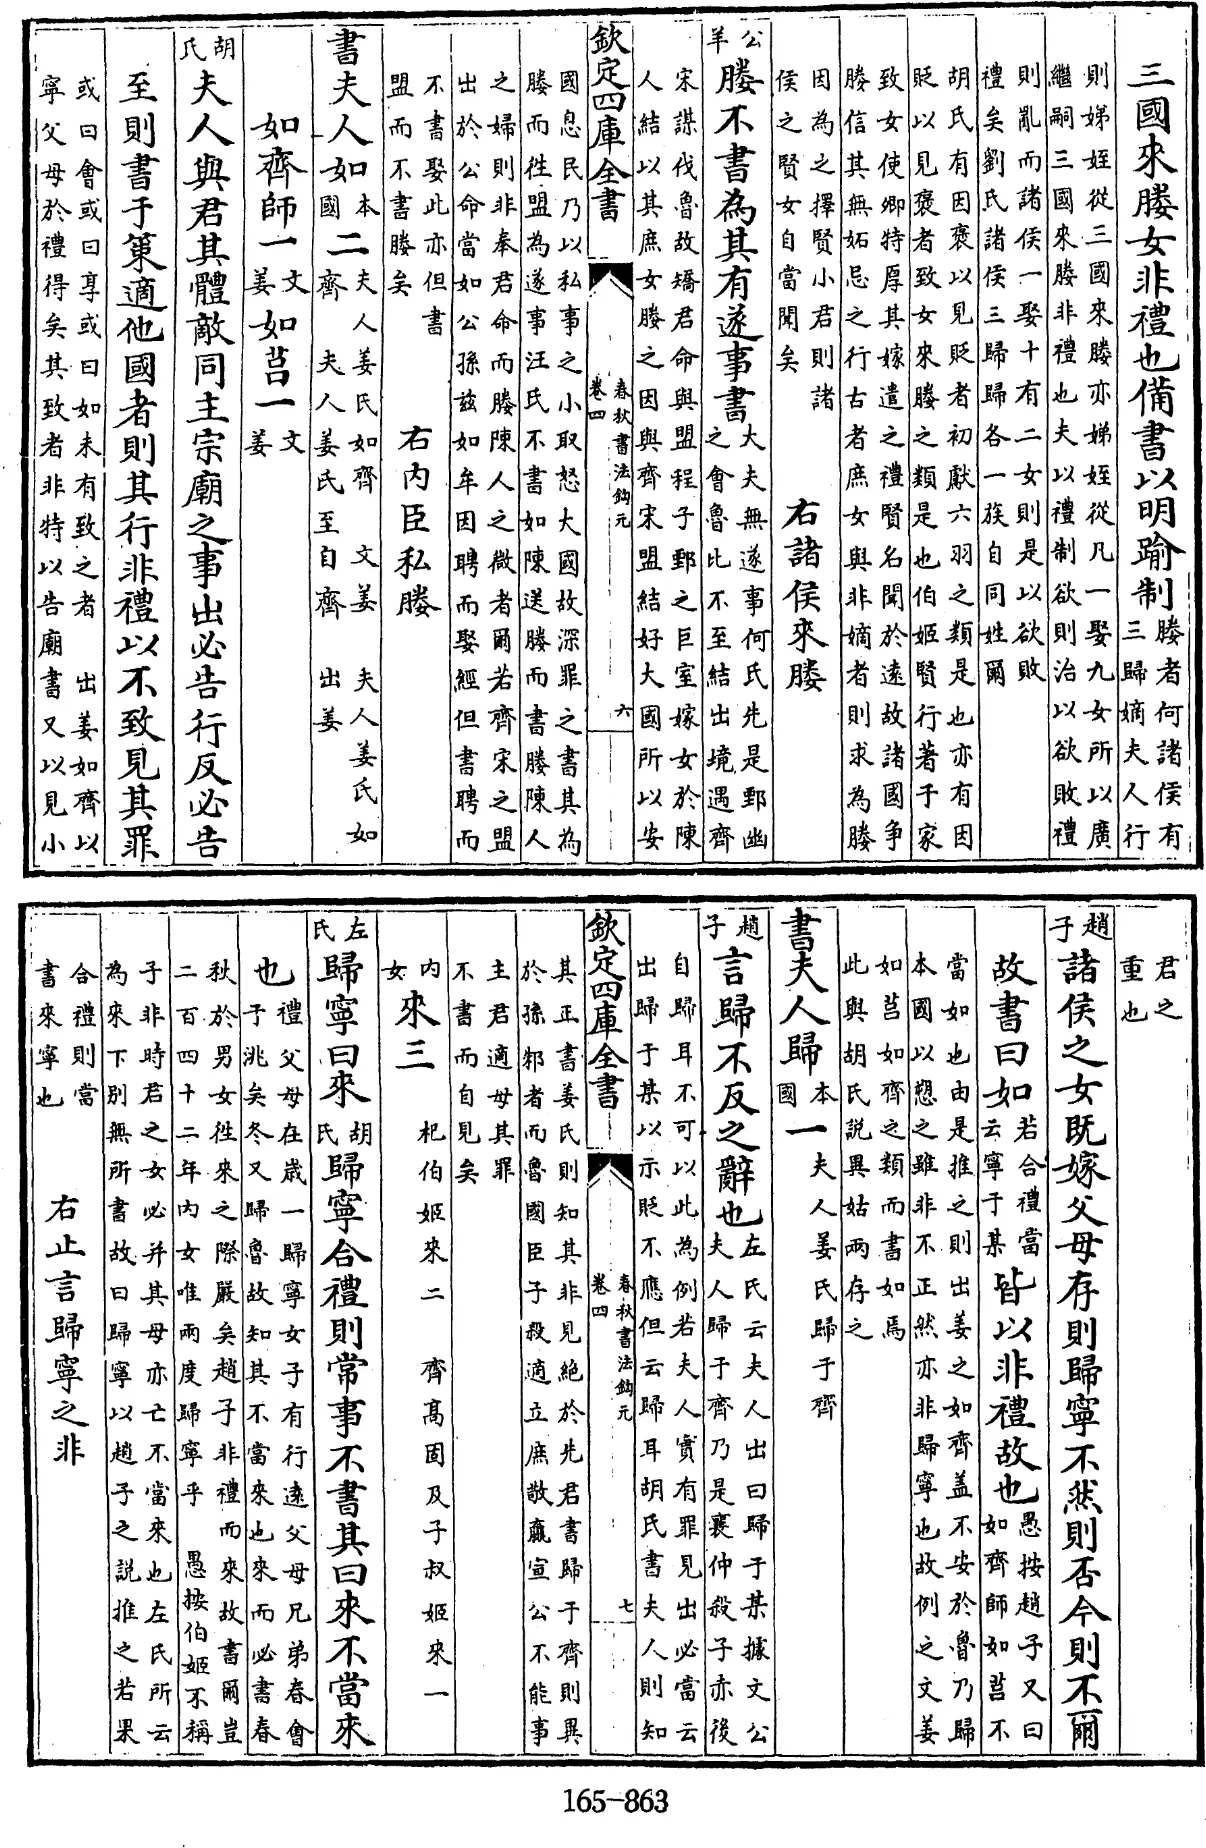 三國來媵女非禮也備書以明踰制媵者何諸侯有
三歸嫡夫人行
則娣姪從三國來媵亦娣姪從凡一娶九女所以廣
繼嗣三國來媵非禮也夫以禮制欲則治以欲敗禮
則亂而諸侯一娶十有二女則是以欲敗
禮矣劉氏諸侯三歸歸各一族自同姓爾
胡氏有因褒以見貶者初獻六羽之類是也亦有因
貶以見褒者致女來媵之類是也伯姬賢行著于家
致女使卿特厚其嫁遣之禮賢名聞於遠故諸國爭
媵信其無妬忌之行古者庶女與非嫡者則求為媵
因為之擇賢小君則諸
侯之賢女自當聞矣
右諸侯來媵
公羊
媵不書為其有遂事書大夫無遂事何氏先是鄄幽
之會魯比不至結出境遇齊
宋謀伐魯故矯君命與盟程子鄄之巨室嫁女於陳
人結以其庶女媵之因與齊宋盟結好大國所以安
欽定四庫全書
春秋書法鈎元
卷四
六
國息民乃以私事之小取怒大國故深罪之書其為
媵而徃盟為遂事汪氏不書如陳送媵而書媵陳人
之婦則非奉君命而媵陳人之微者爾若齊宋之盟
出於公命當如公孫兹如牟因聘而娶經但書聘而
不書娶此亦但書
盟而不書媵矣
右内臣私媵
書夫人如本國二夫人姜氏如齊 文姜 夫人姜氏如
齊 夫人姜氏至自齊 出姜
如齊師一文姜如莒一文姜
胡氏
夫人與君其體敵同主宗廟之事出必告行反必告
至則書于策適他國者則其行非禮以不致見其罪
或曰會或曰享或曰如未有致之者 出姜如齊以
寧父母於禮得矣其致者非特以告廟書又以見小
君之
重也
趙子
諸侯之女既嫁父母存則歸寧不然則否今則不爾
故書曰如若合禮當
云寧于某
皆以非禮故也愚按趙子又曰
如齊師如莒不
當如也由是推之則出姜之如齊盖不安於魯乃歸
本國以愬之雖非不正然亦非歸寧也故例之文姜
如莒如齊之類而書如焉
此與胡氏説異姑兩存之
書夫人歸本國一夫人姜氏歸于齊
趙子
言歸不反之辭也左氏云夫人出曰歸于某據文公
夫人歸于齊乃是襄仲殺子赤後
自歸耳不可以此為例若夫人實有罪見出必當云
出歸于某以示貶不應但云歸耳胡氏書夫人則知
欽定四庫全書
春秋書法鈎元
卷四
七
其正書姜氏則知其非見絶於先君書歸于齊則異
於孫邾者而魯國臣子殺適立庶敬嬴宣公不能事
主君適母其罪
不書而自見矣
内女
來三
杞伯姬來二 齊髙固及子叔姬來一
左氏
歸寧曰來
胡氏
歸寧合禮則常事不書其曰來不當來
也禮父母在歳一歸寧女子有行逺父母兄弟春會
于洮矣冬又歸魯故知其不當來也來而必書春
秋於男女徃來之際嚴矣趙子非禮而來故書爾豈
二百四十二年内女唯兩度歸寧乎 愚按伯姬不稱
子非時君之女必并其母亦亡不當來也左氏所云
為來下別無所書故曰歸寧以趙子之説推之若果
合禮則當
書來寧也
右止言歸寧之非
165-863